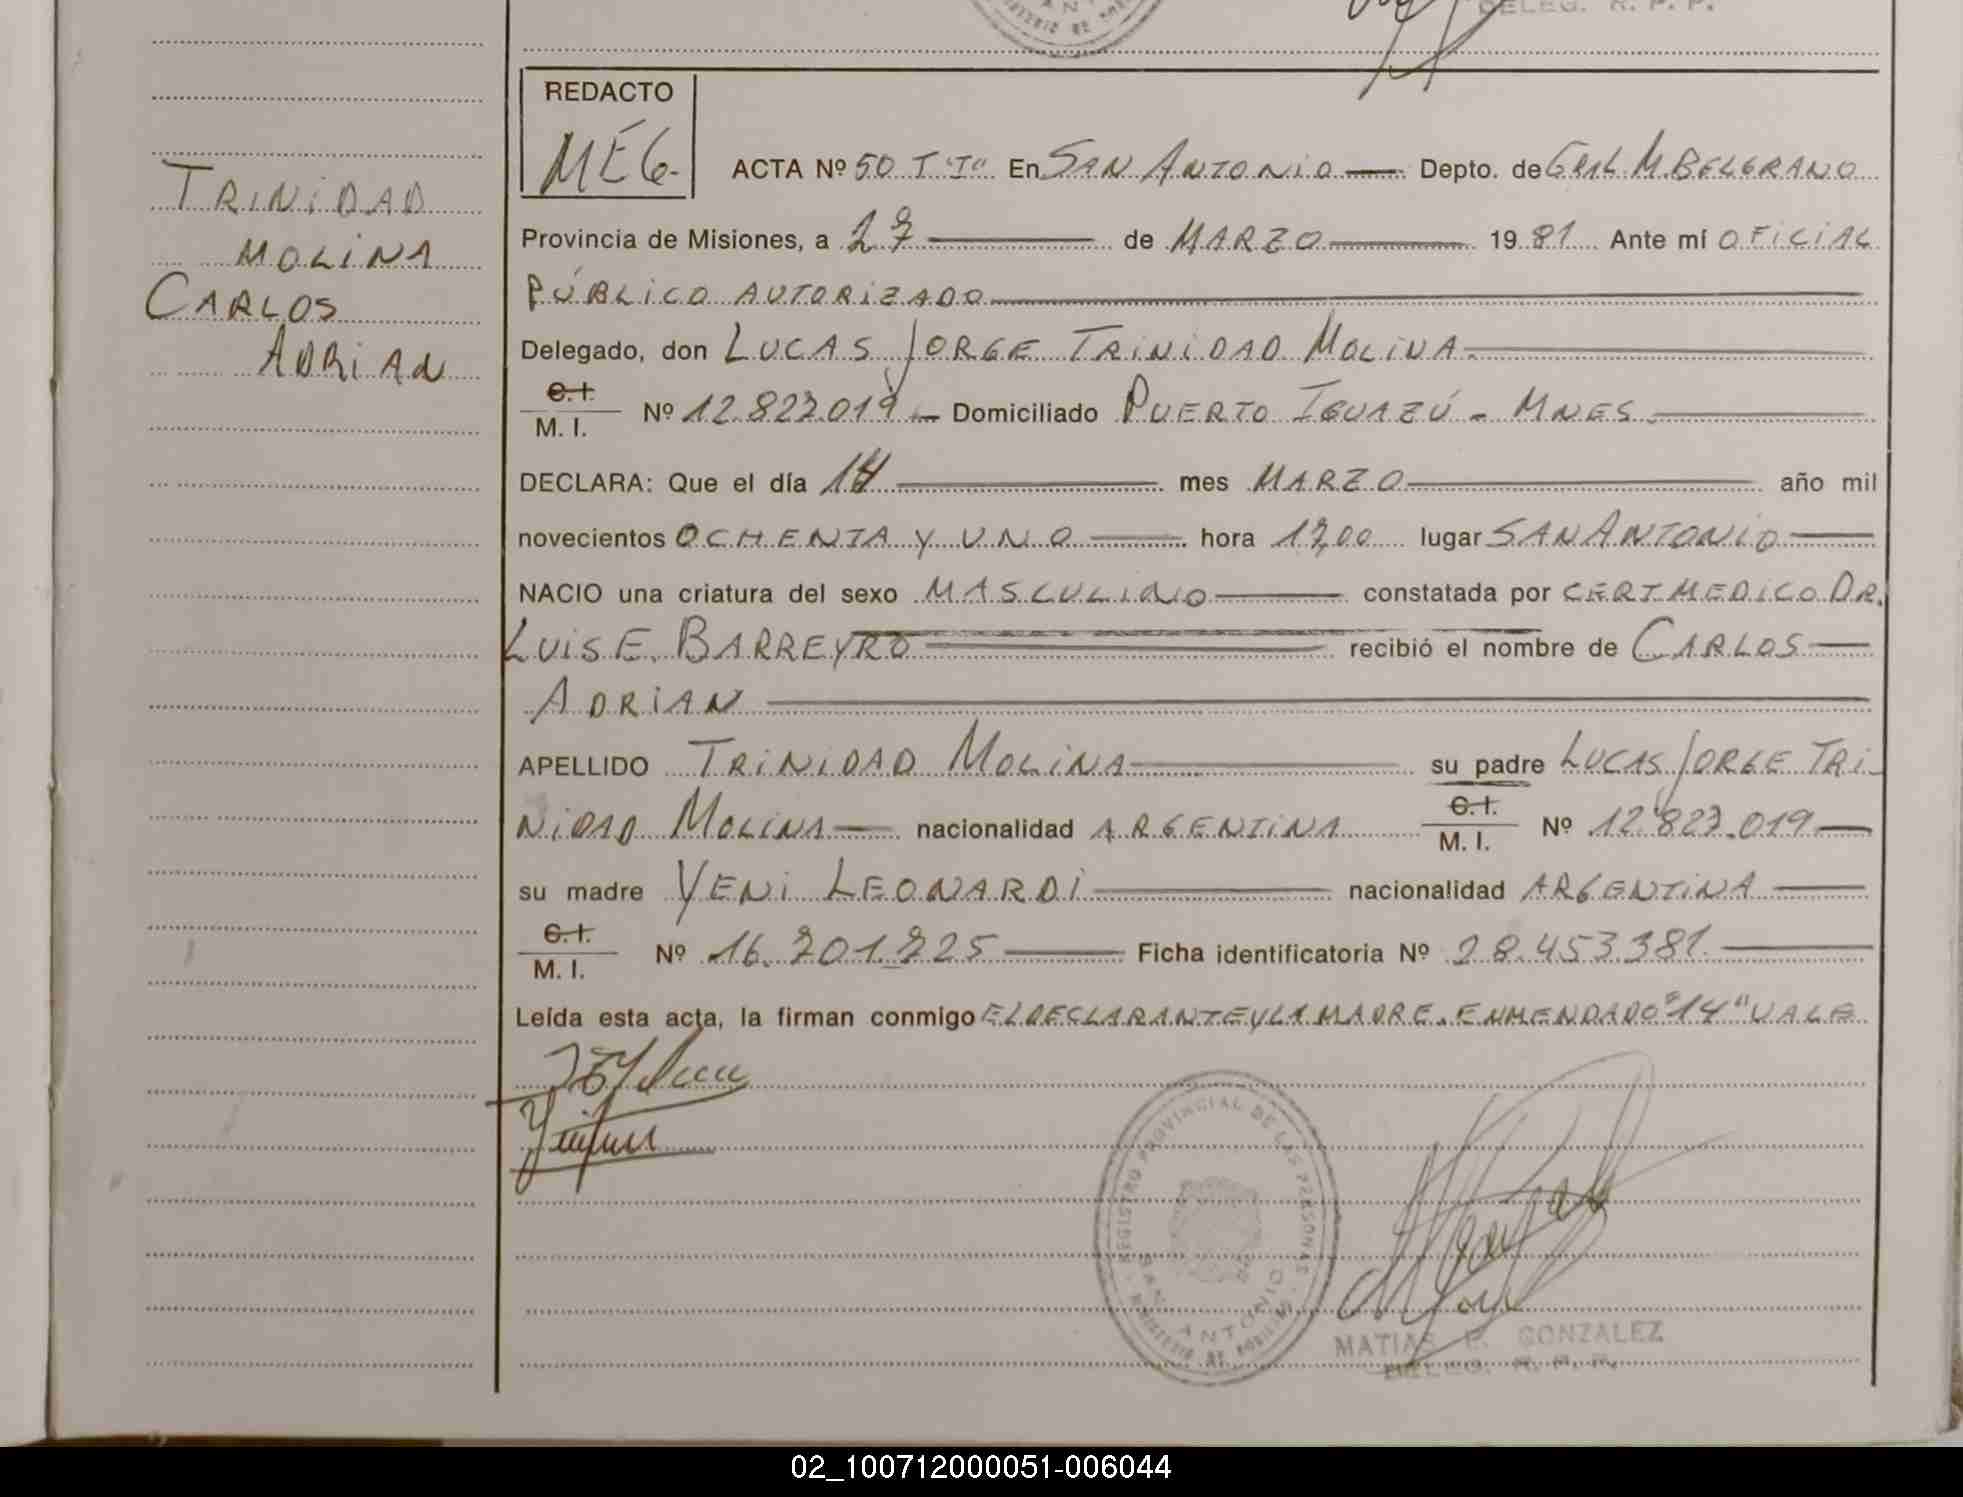 DELEG. R. P. P.
REDACTO
MEG.
TRINIDAD
MOLINA
CARLOS
ADRIAN
ACTA Nº 50 T "I" En SAN ANTONIO Depto. de GRAL. M. BELGRANO
Provincia de Misiones, a 27 de MARZO 1981 Ante mí OFICIAL
PÚBLICO AUTORIZADO
Delegado, don LUCAS JORGE TRINIDAD MOLINA.
C. I.
M. I. Nº 12.827.019 Domiciliado PUERTO IGUAZÚ - MNES.
DECLARA: Que el día 14 mes MARZO año mil
novecientos OCHENTA Y UNO hora 17,00 lugar SAN ANTONIO
NACIO una criatura del sexo MASCULINO constatada por CERT. MEDICO DR.
LUIS E. BARREYRO recibió el nombre de CARLOS
ADRIAN
APELLIDO TRINIDAD MOLINA su padre LUCAS JORGE TRI-
NIDAD MOLINA nacionalidad ARGENTINA C. I. M. I. Nº 12.827.019
su madre YENI LEONARDI nacionalidad ARGENTINA
C. I.
M. I. Nº 16.201.225 Ficha identificatoria Nº 28.453.381.
Leída esta acta, la firman conmigo EL DECLARANTE Y LA MADRE. ENMENDADO "14" VALE
REGISTRO PROVINCIAL DE LAS PERSONAS
SAN ANTONIO
MATIAS E. GONZALEZ
DELEG. R. P. P.
02_100712000051-006044